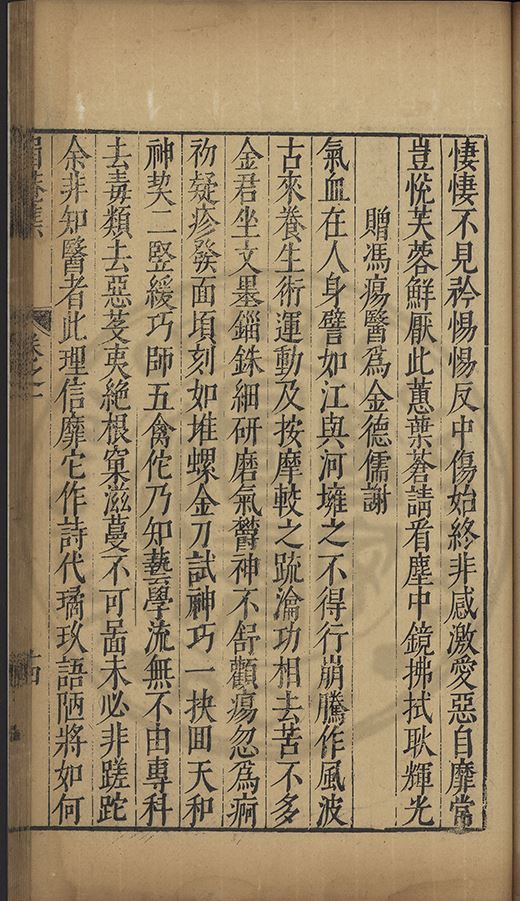 悽悽不見矜惕惕反中傷始終非感激愛惡自靡常
豈悅芙蓉鮮厭此蕙葉蒼請看塵中鏡拂拭耿輝光
贈馮瘍醫為金德儒謝
氣血在人身譬如江與河壅之不得行崩騰作風波
古來養生術運動及按摩較之疏瀹功相去苦不多
金君坐文墨錙銖細研磨氣欝神不舒顴瘍忽為痾
初疑疹發面頃刻如堆螺金刀試神巧一抉回天和
神契二竪緩巧師五禽佗乃知藝學流無不由專科
去毒類去惡芟夷絕根窠滋蔓不可啚未必非蹉跎
余非知醫者此理信靡它作詩代璚玖語陋將如何
卷之一